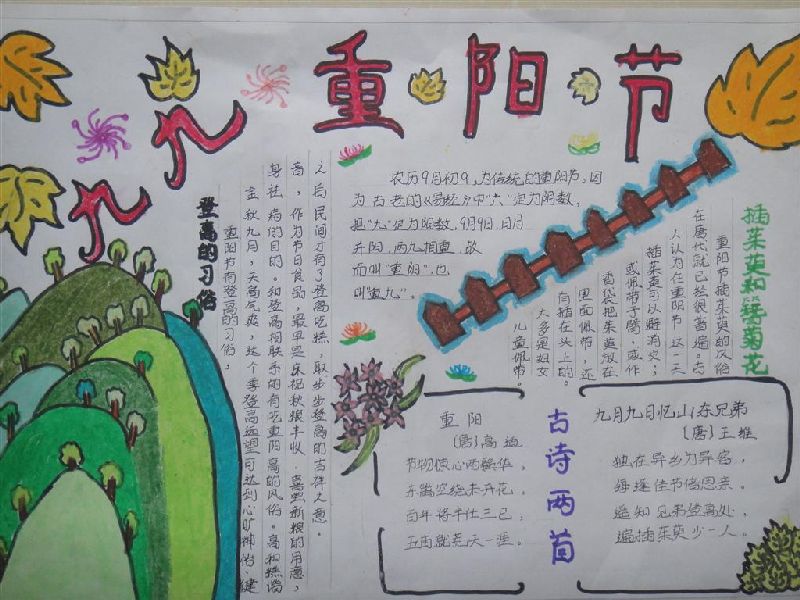 九九重阳节
农历9月初9,为传统的重阳节,因
为古老的《易经》中"六"定为阴数,
把"九"定为阳数,9月9日,日月
并阳,两九相重,故
而叫"重阳",也
叫"重九"。
登高的习俗
重阳节有登高的习俗,
金秋九月,天高气爽,这个季登高远望可达到心旷神怡、健
身祛病的目的。和登高相联系的有吃重阳高的风俗。高和糕谐
音,作为节日食品,最早是庆祝秋粮丰收、喜尝新粮的用意,
之后民间才有了登高吃糕,取步步登高的吉祥之意。
插茱萸和簪菊花
重阳节插茱萸的风俗
在唐代就已经很普遍。古
人认为在重阳节这一天
插茱萸可以避难消灾;
或佩带于臂,或作
香袋把茱萸放在
里面佩带,还
有插在头上的。
大多是妇女
儿童佩带。
古诗两首
重阳
(唐)高适
节物惊心两鬓华,
东篱空绕未开花。
百年将半仕三已,
五亩就荒天一涯。
九月九日忆山东兄弟
(唐)王维
独在异乡为异客,
每逢佳节倍思亲。
遥知兄弟登高处,
遍插茱萸少一人。